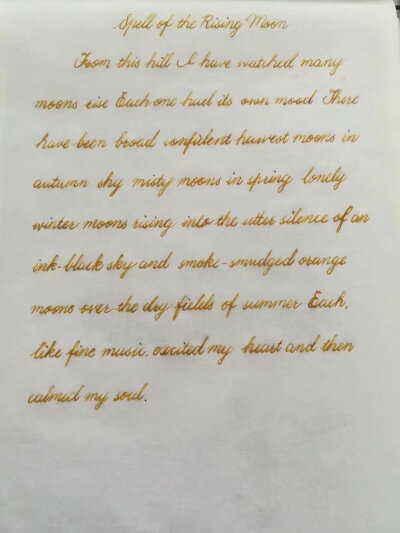 Spell of the Rising Moon
From this hill I have watched many
moons rise Each one had its own mood There
have been broad confident harvest moons in
autumn shy misty moons in spring lonely
winter moons rising into the utter silence of an
ink-black sky and smoke-smudged orange
moons over the dry fields of summer Each,
like fine music, excited my heart and then
calmed my soul.